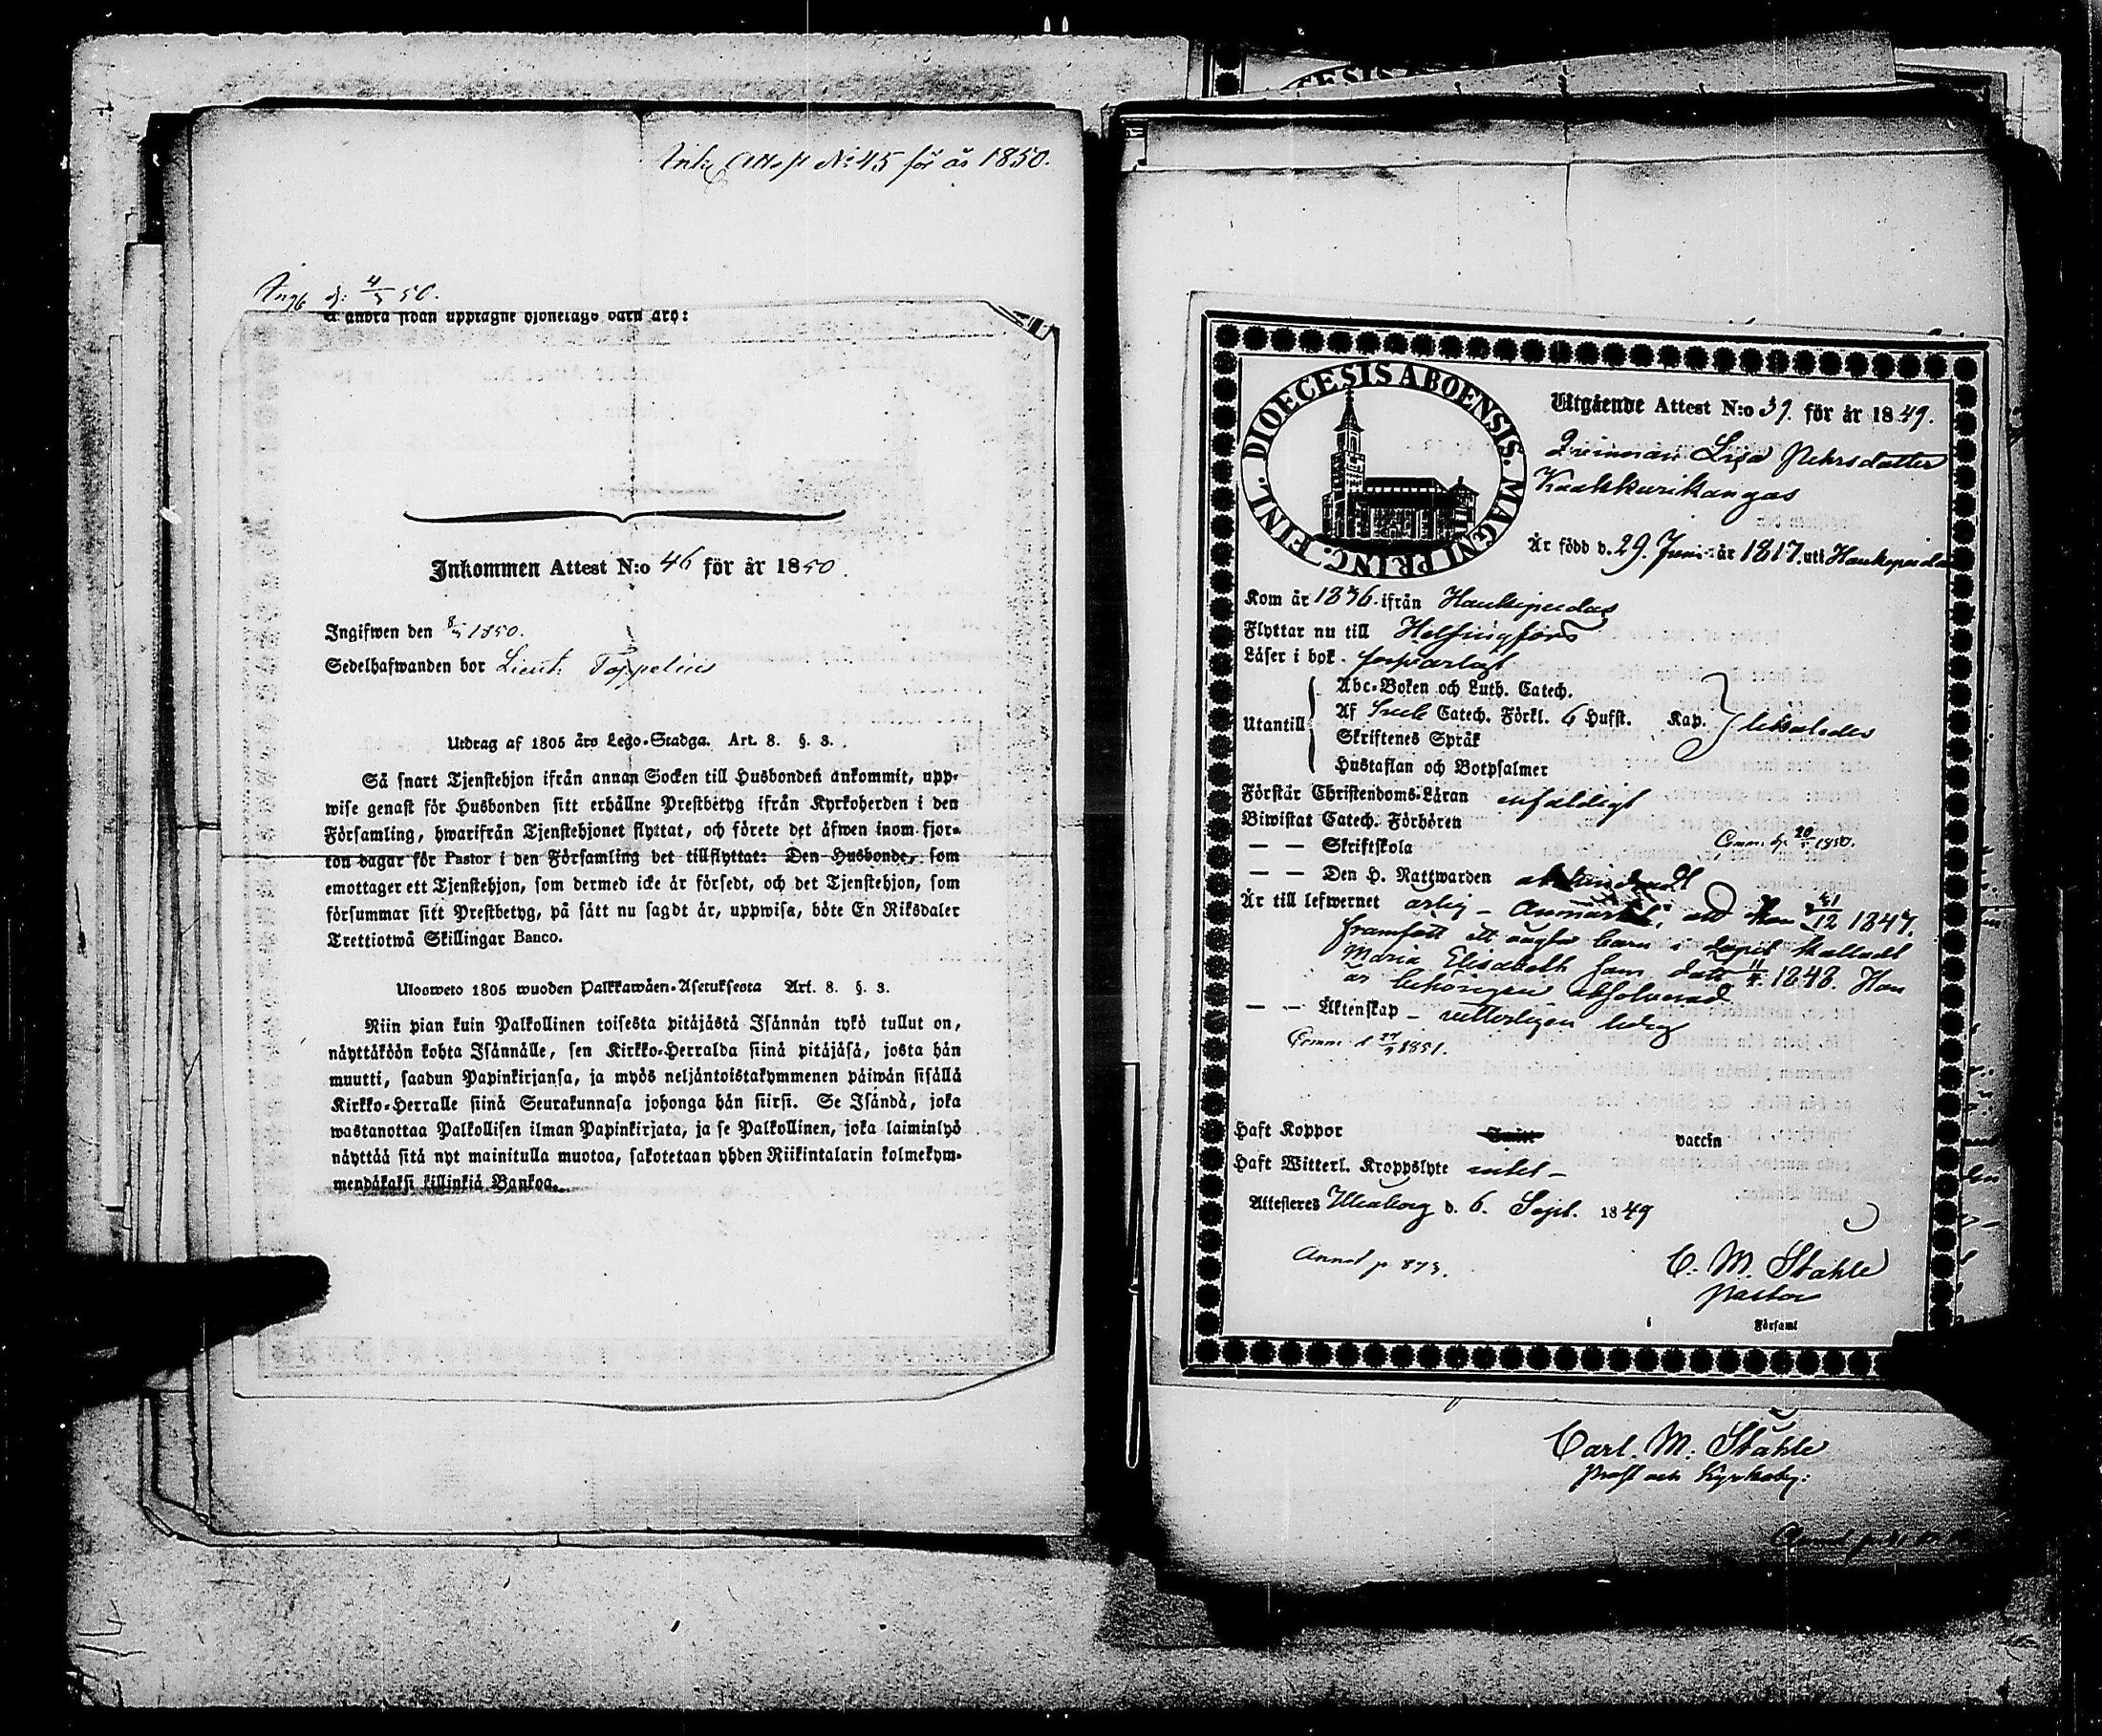 Ink. Attest No 45 för år 1850.
Ingb d: 4/5 50.
å andra sidan upptagne hjonelags barn äro:
Inkommen Attest N:o 46 för år 1850.
Ingifwen den 8/5 1850.
Sedelhafwanden bor Lieut. Toppelius
Utdrag af 1805 års Lego-Stadga. Art. 8. §. 3.
Så snart Tjenstehjon ifrån annan Socken till Husbonden ankommit, upp-
wise genast för Husbonden sitt erhållne Prestbetyg ifrån Kyrkoherden i den
Församling, hwarifrån Tjenstehjonet flyttat, och förete det äfwen inom fjor-
ton dagar för Pastor i den Församling det tillflyttat: Den Husbonde, som
emottager ett Tjenstehjon, som dermed icke är försedt, och det Tjenstehjon, som
försummar sitt Prestbetyg, på sätt nu sagdt är, uppwisa, böte En Riksdaler
Trettiotwå Skillingar Banco.
Ulosweto 1805 wuoden Palkkawäen-Asetuksesta Art. 8. §. 3.
Niin pian kuin Palkollinen toisesta pitäjästä Isännän tykö tullut on,
näyttäköön kohta Isännälle, sen Kirkko-Herralda siinä pitäjäsä, josta hän
muutti, saadun Papinkirjansa, ja myös neljäntoistakymmenen päiwän sisällä
Kirkko-Herralle siinä Seurakunnasa johonga hän siirsi. Se Isändä, joka
wastanottaa Palkollisen ilman Papinkirjata, ja se Palkollinen, joka laiminlyö
näyttää sitä nyt mainitulla muotoa, sakotetaan yhden Riikintalarin kolmekym-
mendäkaksi killinkiä Bankoa.
DIOECESIS ABOENSIS. MAGNI PRINC. FINL.
Utgående Attest N:o 39. för år 1849.
Qvinnan Lisa Pehrsdotter
Kaakkurikangas
Är född d. 29. Juni år 1817. uti Haukipudas
Kom år 1846. ifrån Haukipudas
Flyttar nu till Helsingfors
Läser i bok. försvarligt
Abc-Boken och Luth. Catech.
Utantill Af Sveb Catech. Förkl. 6 Hufst. Kap.
Skriftenes Språk
Hustaflan och Botpsalmer
Förstår Christendoms-Läran enfaldigt
Biwistat Catech. Förhören
— — Skriftskola Comm. d. 20/5 1850.
— — Den H. Nattwarden
Är till lefwernet ärlig - Anmärkt, att Hon 31/12 1847.
framfödt ett oägta barn i dopet kalladt
Maria Elisabeth 11/4 1848. Hon
är behörigen absolverad.
— — Äktenskap - vetterligen ledig
Comm. d. 27/7 1851.
Haft Koppor vaccin
Haft Witterl. Kroppslyte intet -
Attesteres Uleaborg d. 6. Sept. 1849
Annot p 873.
C. M. Ståhle
Pastor
i Församl
Carl. M: Ståhle
Prost och Kyrkohr: